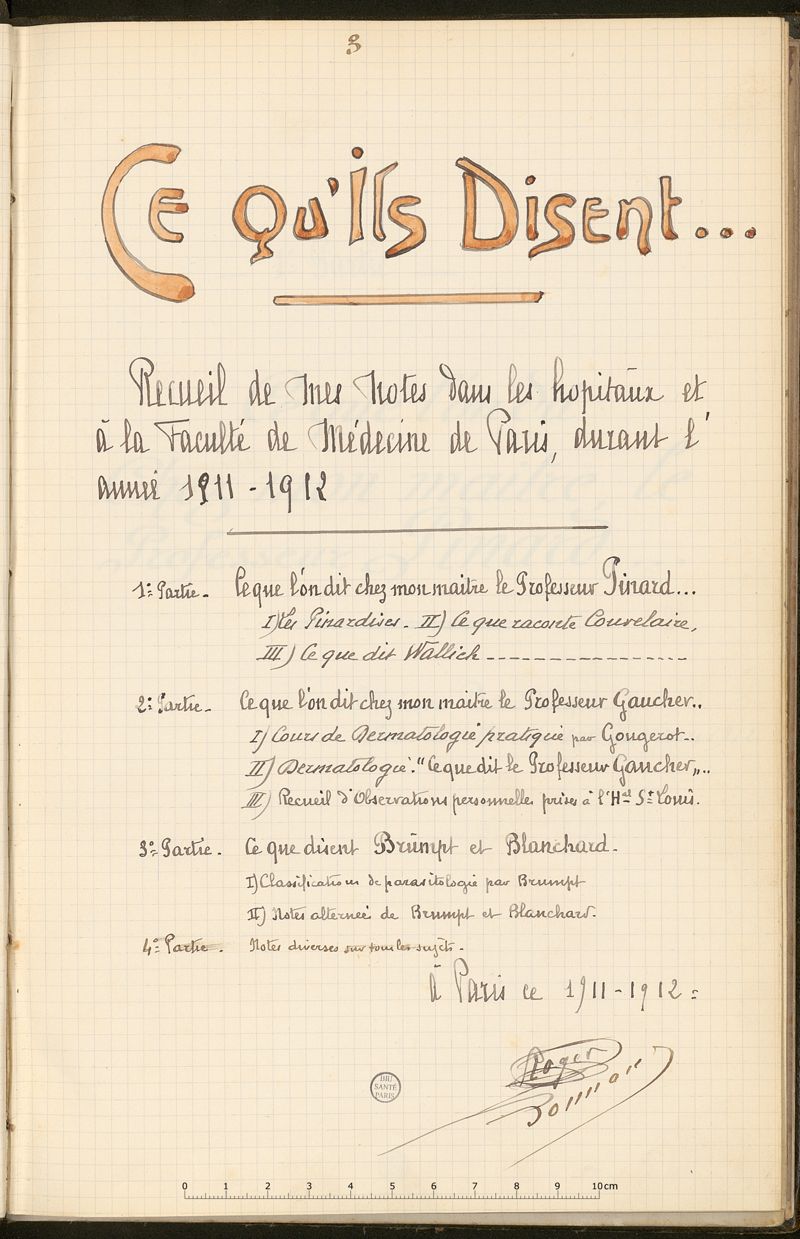 3
Ce Qu'ils Disent...
Recueil de mes Notes dans les hopitaux et
à la Faculté de Médecine de Paris, durant l'
année 1911 - 1912
1e Partie - Ce que l'on dit chez mon maitre le Professeur Pinard...
I) Les Pinardises - II) Ce que raconte Couvelaire,
III) Ce que dit Wallich
2e Partie - Ce que l'on dit chez mon maitre le Professeur Gaucher..
I) Cours de Dermatologie pratique par Gougerot..
II) Dermatologie. "Ce que dit le Professeur Gaucher"..
III) Recueil d'Observations personnelles prises à l'Hal St Louis.
3e Partie - Ce que disent Brumpt et Blanchard.
I) Classifications de parasitologie par Brumpt
II) Notes alternées de Brumpt et Blanchard.
4e Partie. Notes diverses sur tous les sujets.
à Paris ce 1911 - 1912
Roger
BIU
SANTÉ
PARIS
0 1 2 3 4 5 6 7 8 9 10cm